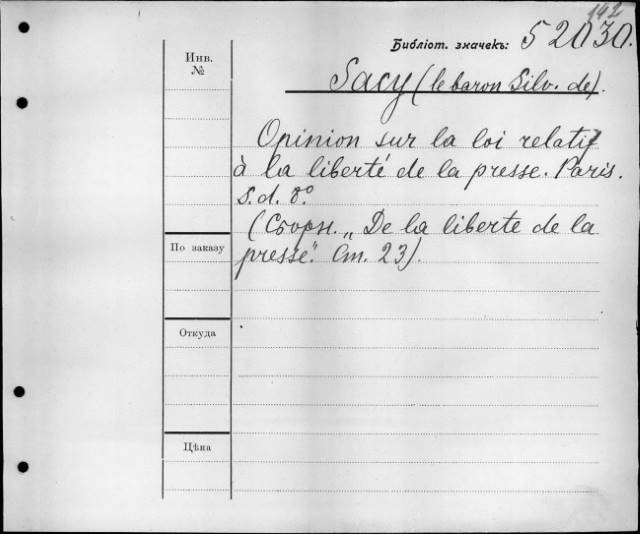 142
Библіот. значекъ: 52030.
Инв.
№
Sacy (le baron Silv. de).
Opinion sur la loi relatif
à la liberté de la presse. Paris.
S.d. 8º.
(Сборн. „De la liberte de la
По заказу
presse". Ст. 23).
Откуда
Цѣна